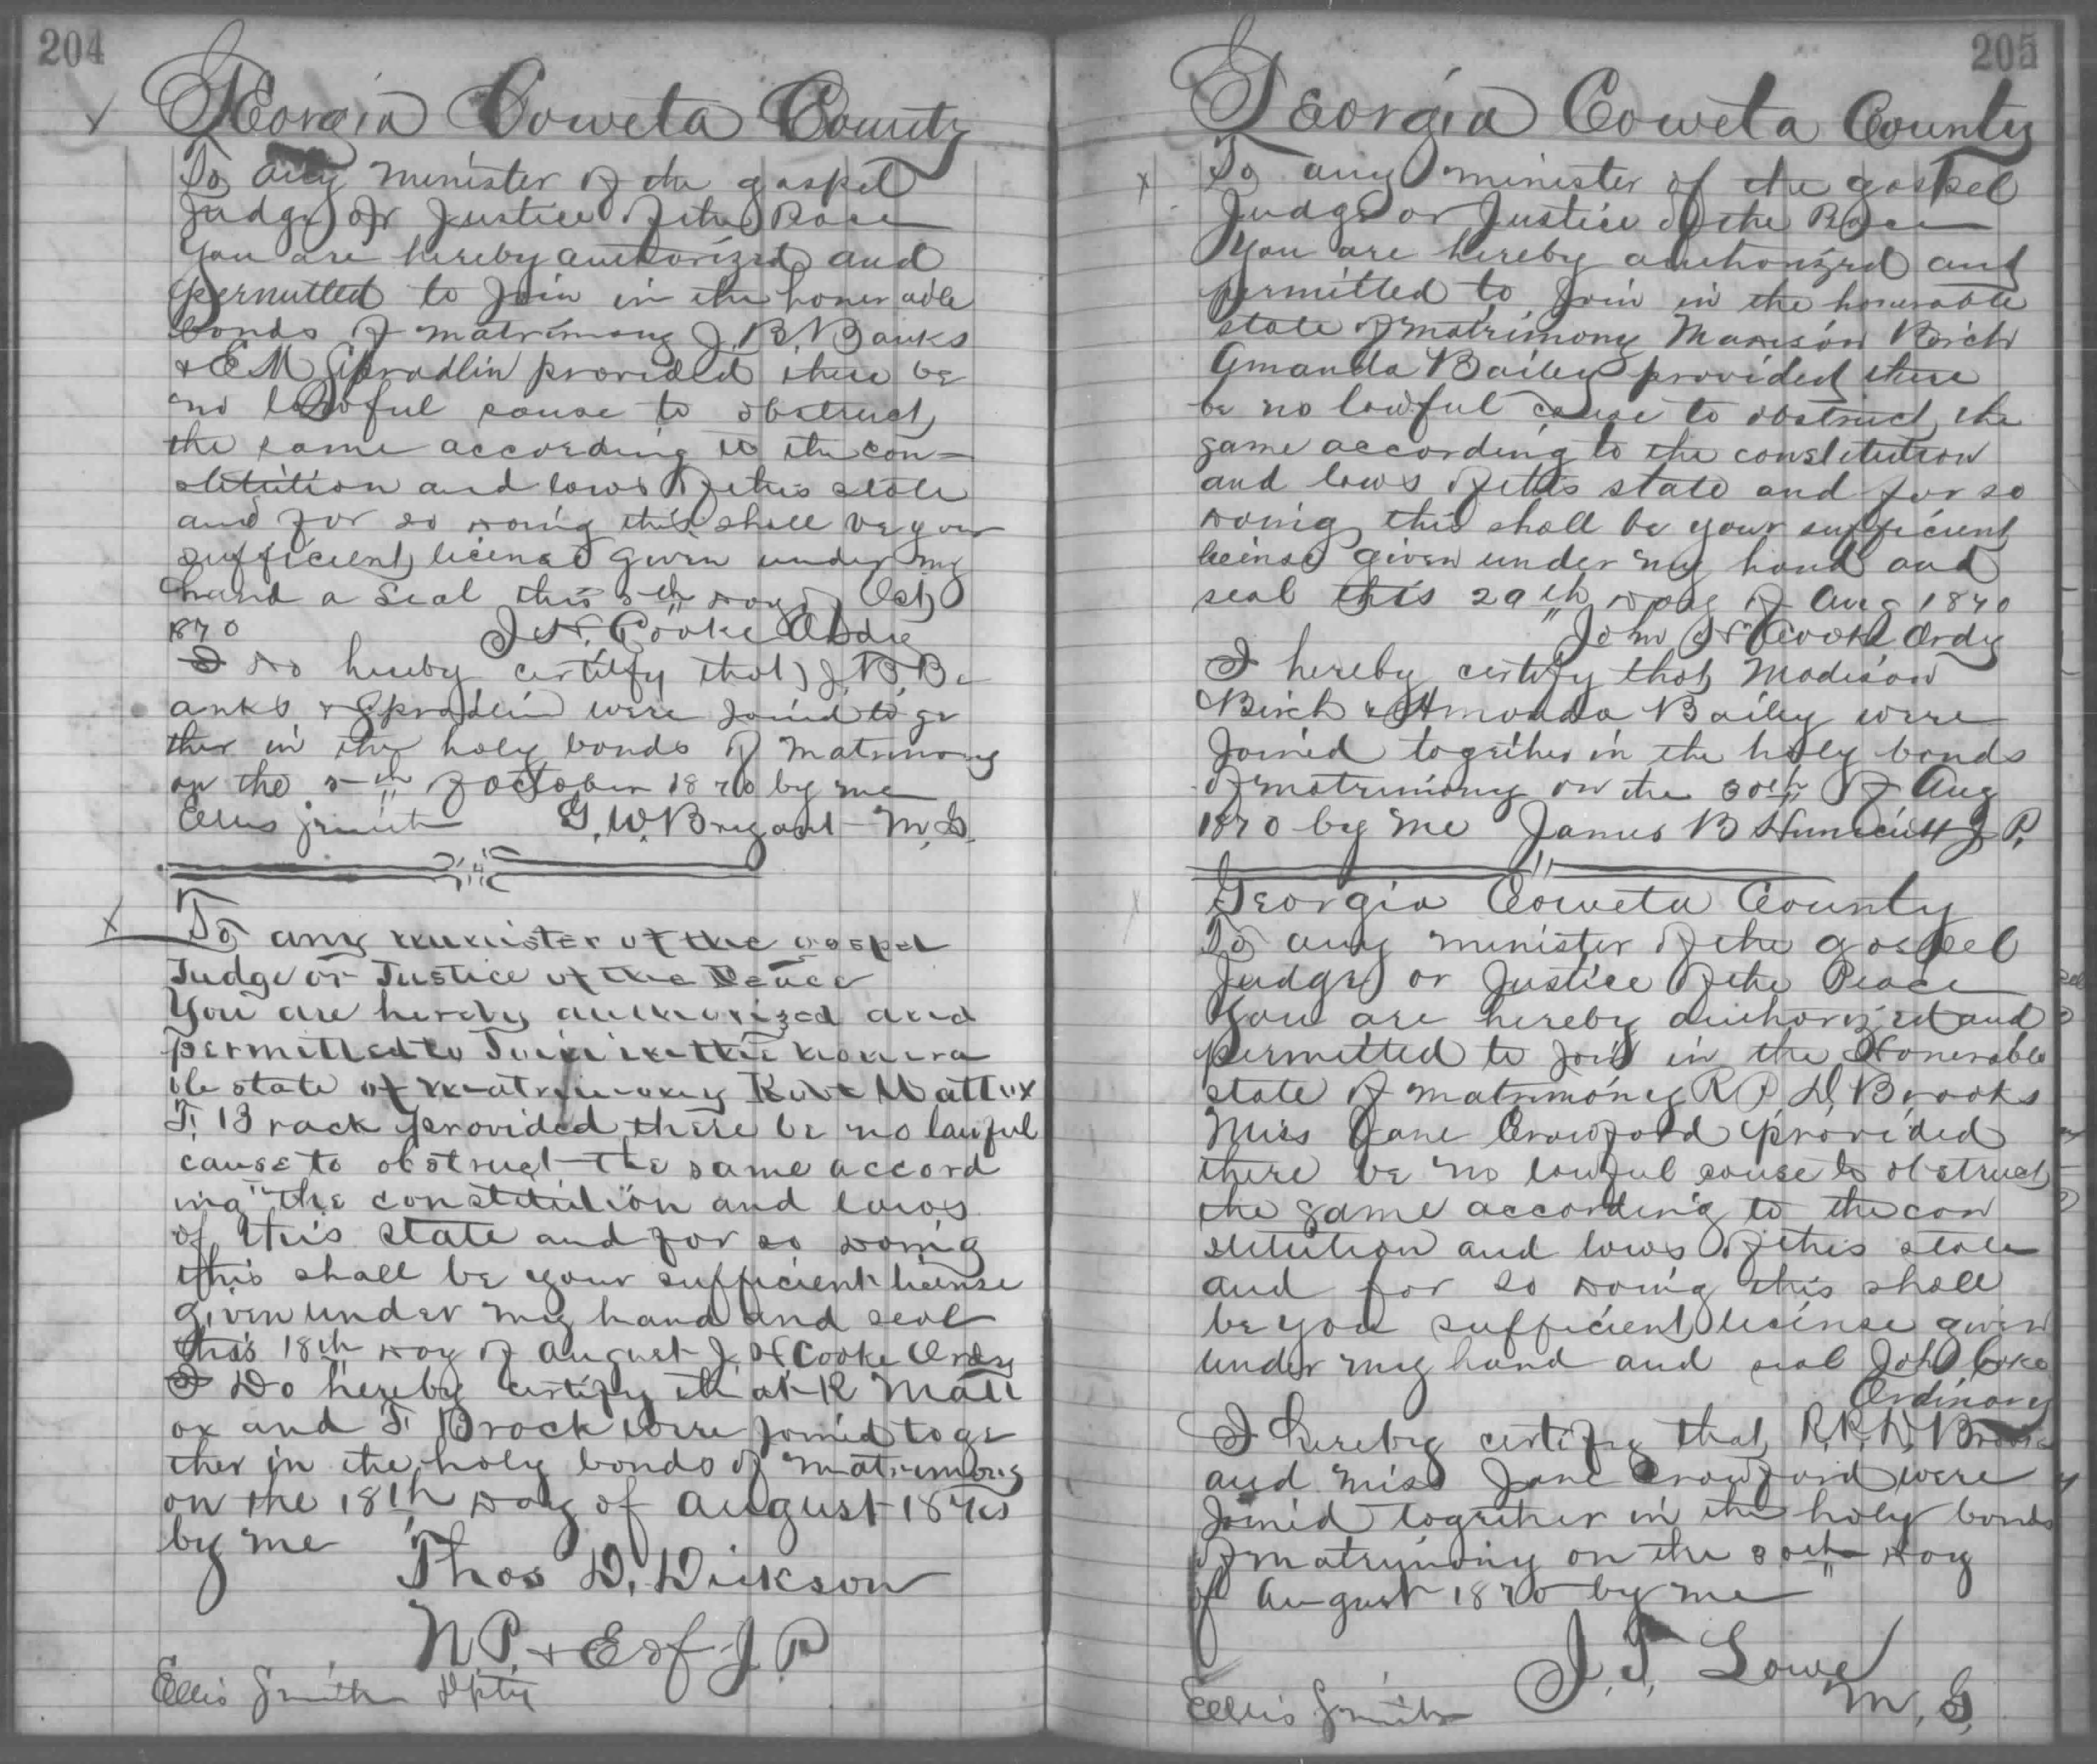 204
Georgia Coweta County
To any minister of the gospel
Judge or Justice of the Peace
You are hereby authorized and
permitted to Join in the honerable
bonds of matrimony J. B. Banks
& E M Spradlin provided there be
no lawful cause to obstruct
the same according to the con-
stitution and laws of this state
and for so doing this shall be your
sufficient license given under my
hand a Seal this 5th day of Oct
1870 J. H. Cooke Ordy
I do hereby certify that J. B. B
anks & Spradlin were joined toge
ther in the holy bonds of matrimony
on the 5th of October 1870 by me
Ellis Smith G. W. Bryant M. G.
To any minister of the gospel
Judge or Justice of the Peace
You are hereby authorized and
permitted to Join in the honera
ble state of matrimony Mattox
F. Brock provided there be no lawful
cause to obstruct the same accord
ing the constitution and laws
of this state and for so doing
this shall be your sufficient license
given under my hand and seal
this 18th day of August J. H Cooke Ordy
I Do hereby certify that R Matt
ox and F. Brock were joined toge
ther in the holy bonds of matrimony
on the 18th day of August 1870
by me
Thos D. Dickson
N P. & Exf J. P
Ellis Smith Dpty
205
Georgia Coweta County
To any minister of the gospel
Judge or Justice of the Peace
You are hereby authorized and
permitted to join in the honerable
state of matrimony Birch
Amanda Bailey provided there
be no lawful cause to obstruct the
same according to the constitution
and laws of this state and for so
doing this shall be your sufficient
license given under my hand and
seal this 29th day of Aug 1870
John H Cook Ordy
I hereby certify that Madison
Birch & Amanda Bailey were
joined together in the holy bonds
of matrimony on the 30th of Aug
1870 by me James B Hunnicutt J P.
Georgia Coweta County
To any minister of the gospel
Judge or Justice of the Peace
You are hereby authorized and
permitted to join in the Honerable
state of matrimony R. P. D. Brooks
Miss Jane Crawford provided
there be no lawful cause to obstruct
the same according to the con
stitution and laws of this state
and for so doing this shall
be you sufficient license given
under my hand and seal John Cooke
Ordinary
I hereby certify that Brooks
and miss Jane Crawford were
Joined together in the holy bonds
of matrimony on the 30th day
of August 1870 by me
J. T. Lowe
M. G.
Ellis Smith